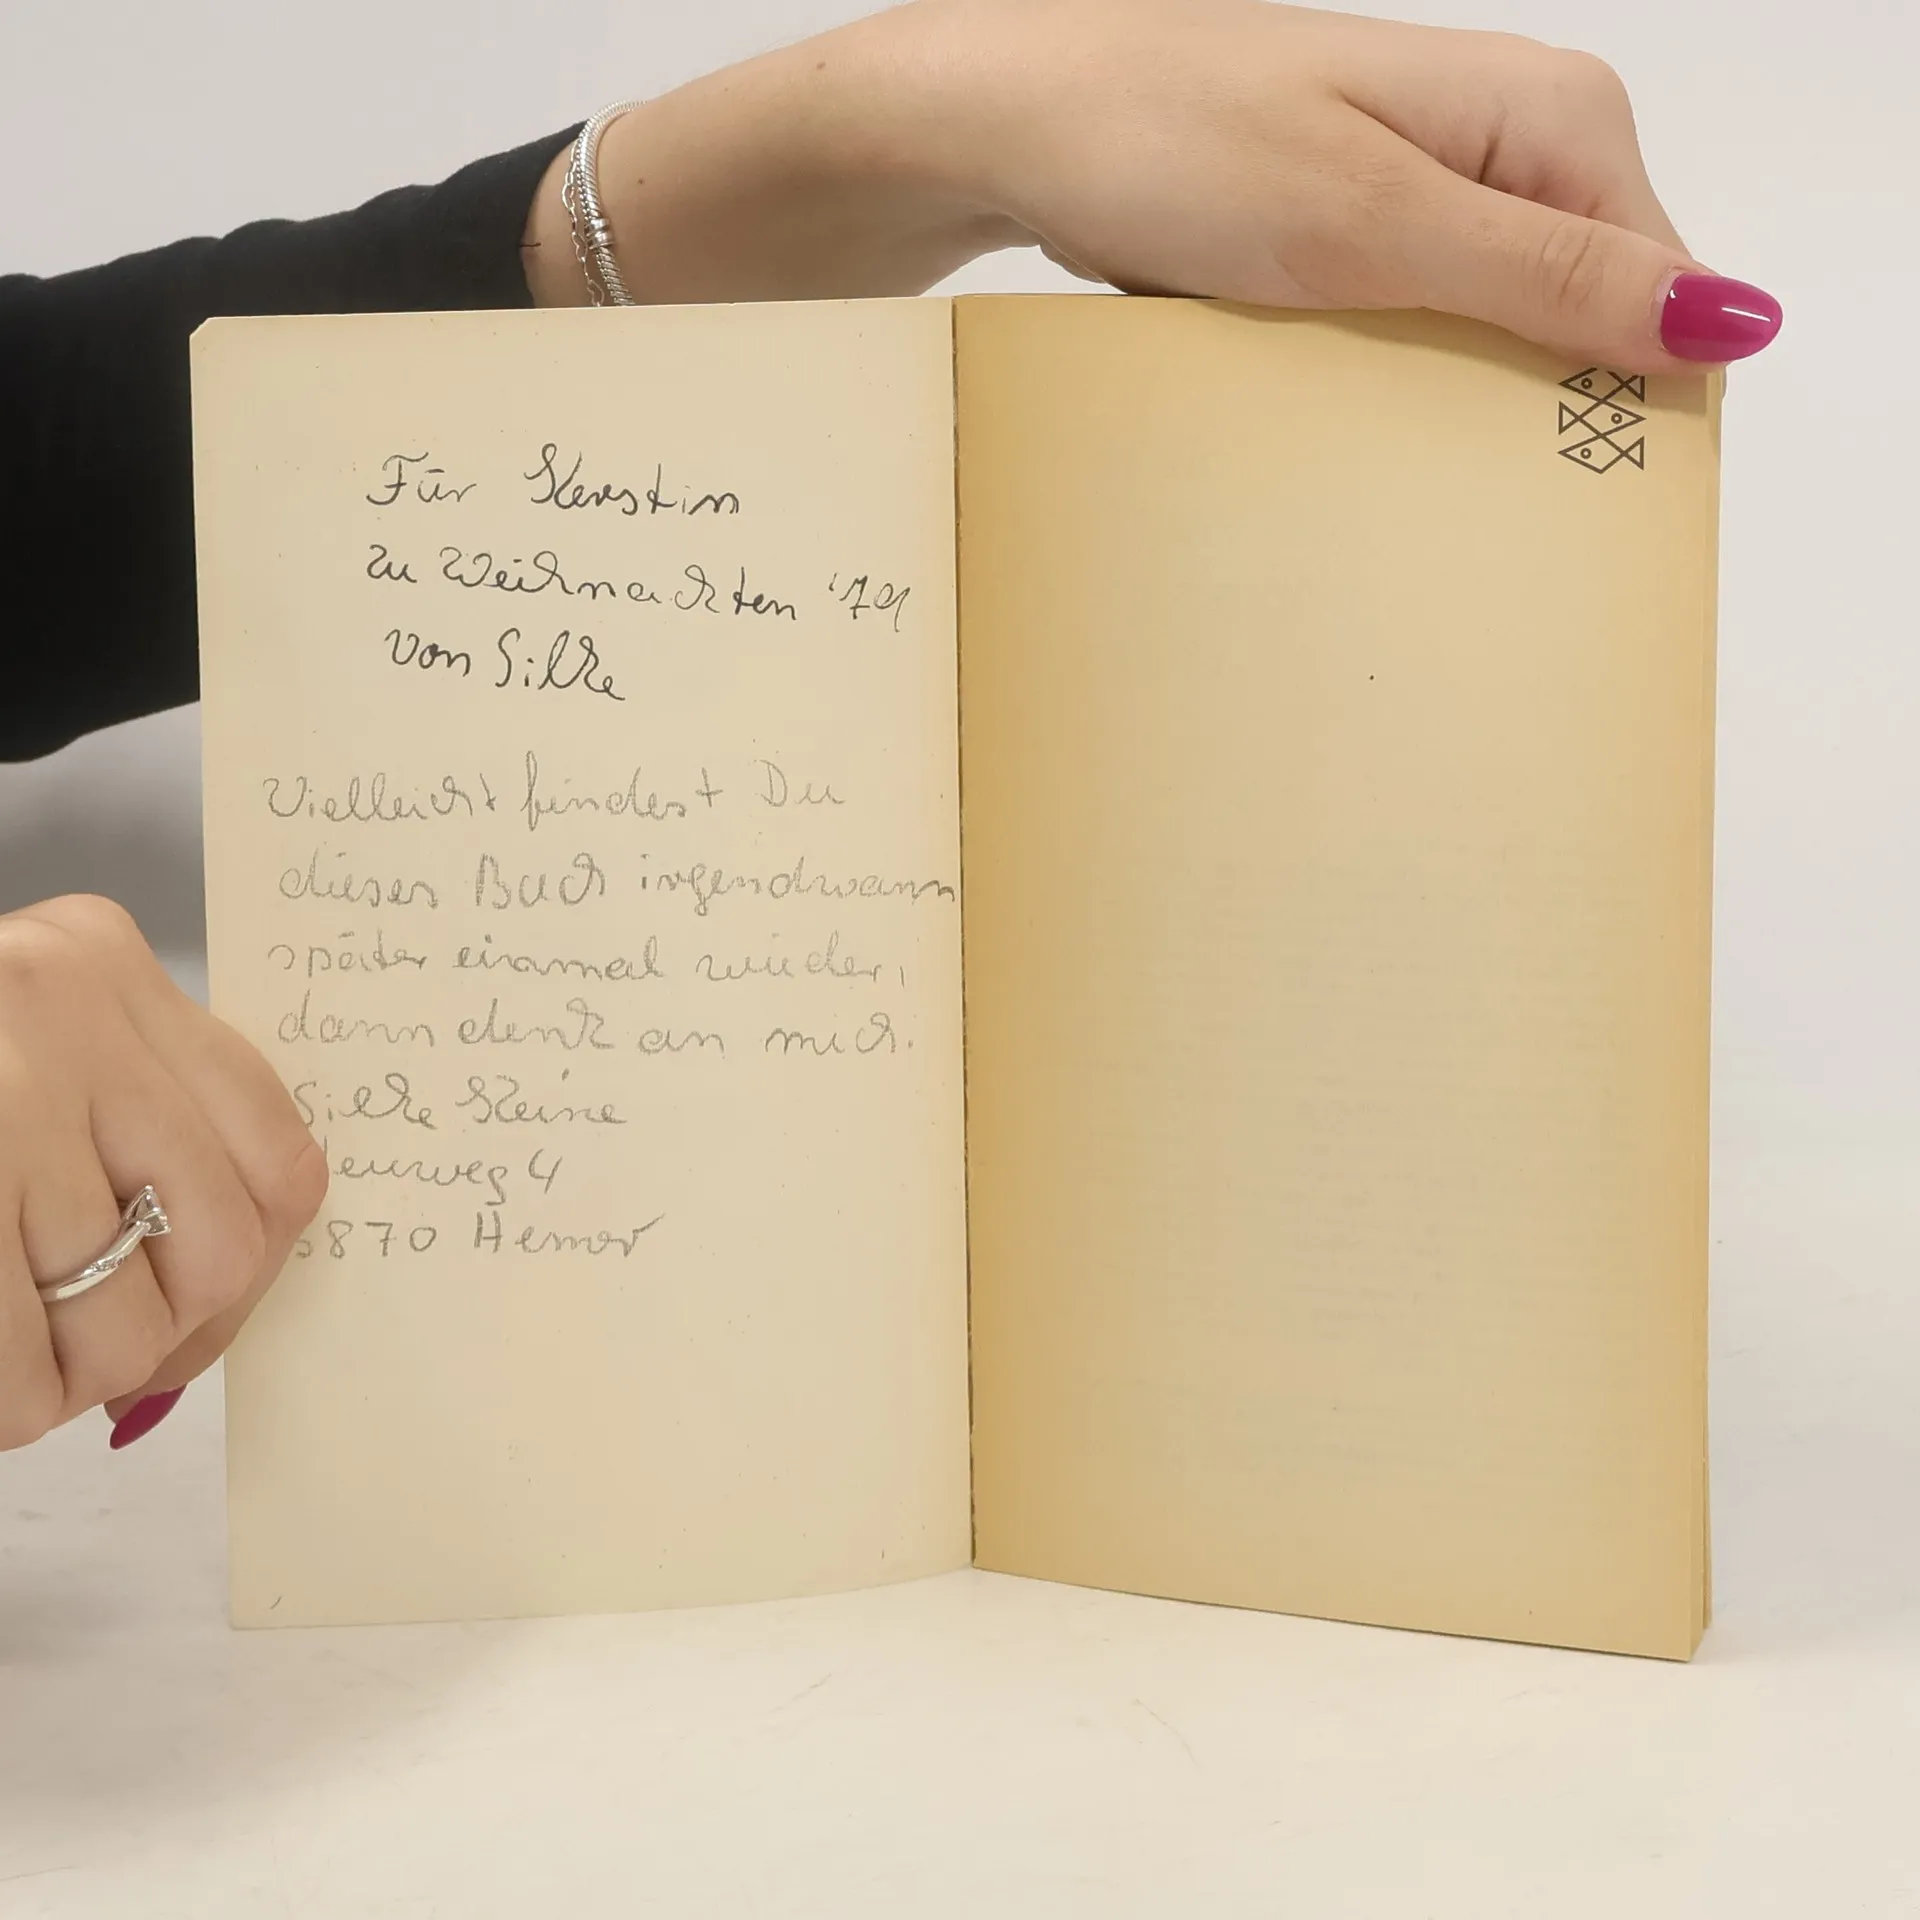 Für Kerstin
zu Weihnachten '79
von Silke
Vielleicht findest Du
dieses Buch irgendwann
später einmal wieder,
dann denk an mich.
Silke
weg 4
870